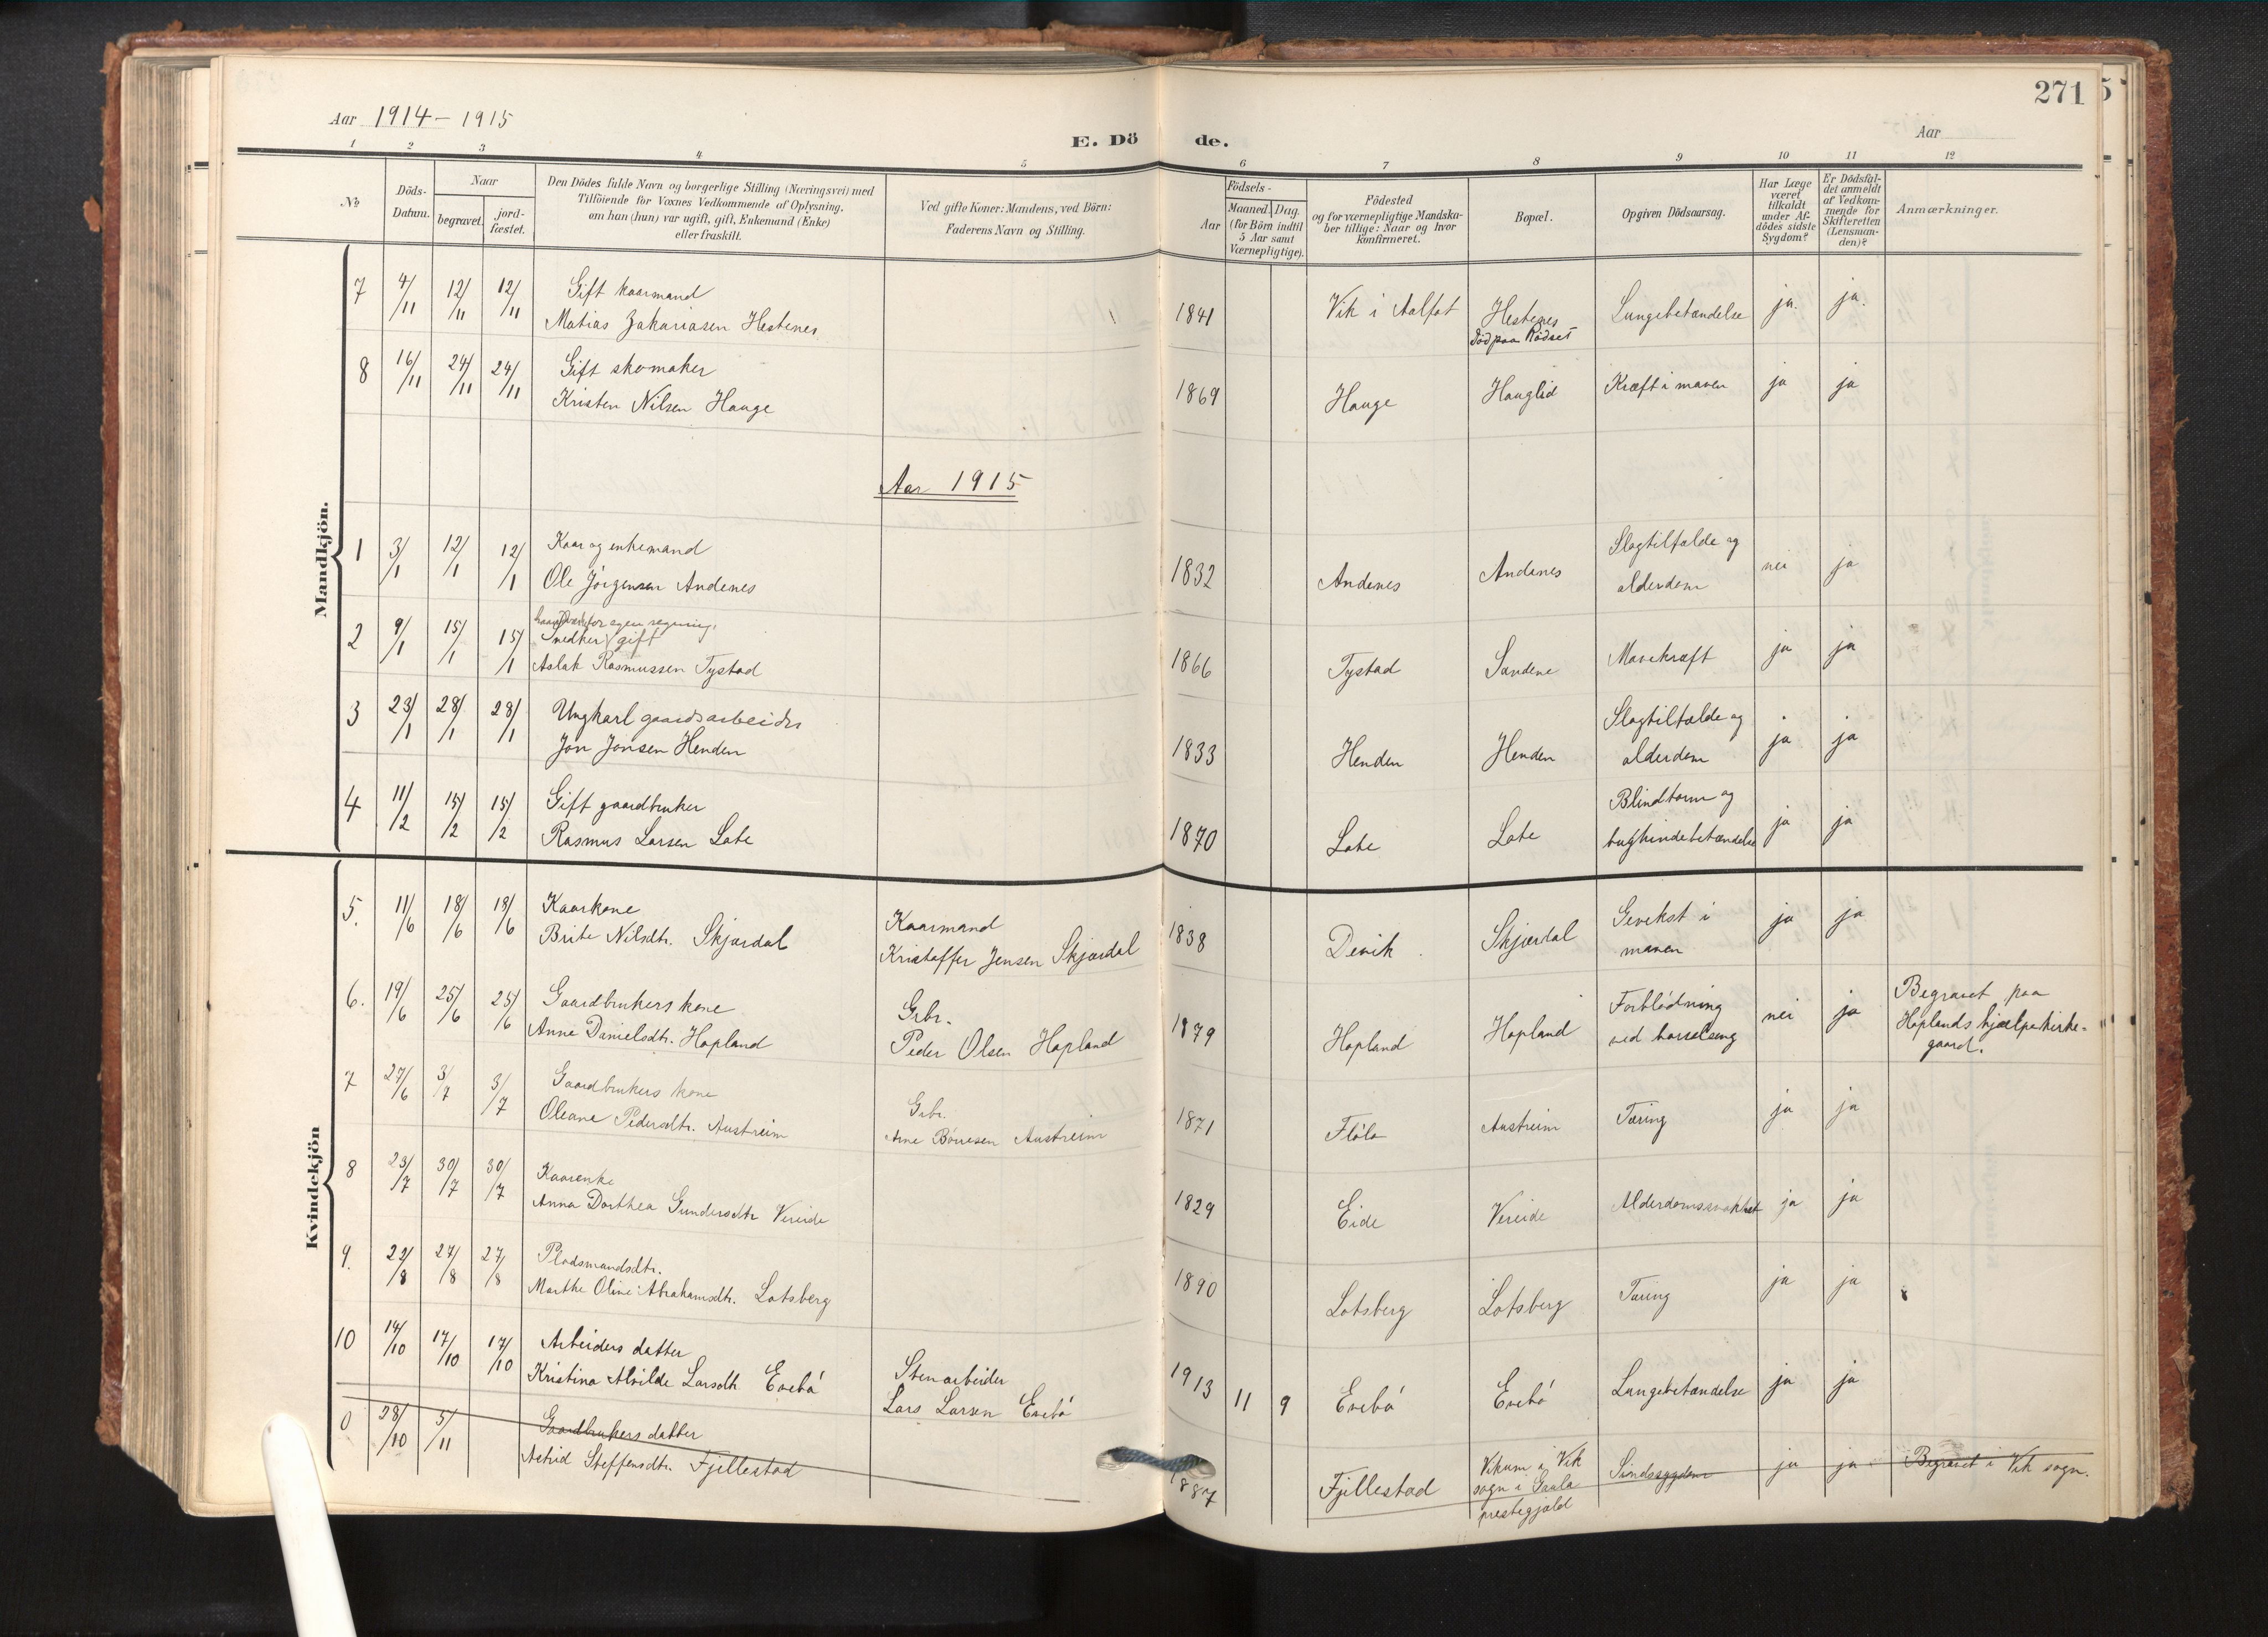 271
Aar 1914 – 1915
E. Dö de.
Aar
1 2 3 4 5 6 7 8 9 10 11 12
No
Döds-Datum.
Naar
begravet.
jord-fæstet.
Den Dödes fulde Navn og borgerlige Stilling (Næringsvei) med
Tilföiende for Voxnes Vedkommende af Oplysning,
om han (hun) var ugift, gift, Enkemand (Enke)
eller fraskilt.
Ved gifte Koner: Mandens, ved Börn:
Faderens Navn og Stilling.
Födsels-
Aar
Maaned. Dag.
(for Börn indtil
5 Aar samt
Værnepligtige).
Födested
og for værnepligtige Mandska-
ber tillige: Naar og hvor
konfirmeret.
Bopæl.
Opgiven Dödsaarsag.
Har Læge
været
tilkaldt
under Af-
dödes sidste
Sygdom?
Er Dödsfal-
det anmeldt
af Vedkom-
mende for
Skifteretten
(Lensman-
den)?
Anmærkninger.
Mandkjön.
7 4/11 12/11 12/11 Gift kaarmand
Matias Zakariasen Hestenes 1841 Vik i Aalfot Hestenes
död paa Rödset Lungebetændelse ja. ja.
8 16/11 24/11 24/11 Gift skomaker
Kristen Nilsen Hauge 1869 Hauge Hauglid Kræft i maven ja ja
Aar 1915
1 3/1 12/1 12/1 Kaar og enkemand
Ole Jörgensen Andenes 1832 Andenes Andenes Slagtilfælde og
alderdom nei ja
2 9/1 15/1 15/1 for egen regning,
Snedker gift
Aslak Rasmussen Tystad 1866 Tystad Sandene Mavekræft ja ja
3 23/1 28/1 28/1 Ungkarl gaardsarbeider
Jon Jonsen Henden 1833 Henden Henden Slagtilfælde og
alderdom ja ja
4 11/2 15/2 15/2 Gift gaardbruker
Rasmus Larsen Lote 1870 Lote Lote Blindtarm og
bughindebetændelse ja ja
Kvindekjön
5. 11/6 18/6 18/6 Kaarkone
Brite Nilsdtr. Skjærdal
Kaarmand
Kristoffer Jensen Skjærdal 1838 Devik Skjærdal Gevekst i
maven ja ja
6. 19/6 25/6 25/6 Gaardbrukers kone
Anne Danielsdtr. Hopland
Grbr.
Peder Olsen Hopland 1879 Hopland Hopland Forblödning
ved barselseng nei ja Begravet paa
Hoplands hjælpekirke-
gaard.
7 27/6 3/7 3/7 Gaardbrukers kone
Oleane Pedersdtr. Austreim
Grbr.
Arne Börresen Austreim 1871 Flöle Austreim Tæring ja ja
8 23/7 30/7 30/7 Kaarenke
Anna Dorthea Gundersdtr Vereide 1829 Eide Vereide Alderdomssvakhet ja ja
9. 22/8 27/8 27/8 Pladsmandsdtr.
Marthe Oline Abrahamsdtr. Lotsberg 1890 Lotsberg Lotsberg Tæring ja ja
10 14/10 17/10 17/10 Arbeiders datter
Kristina Alvilde Larsdtr Evebö
Stenarbeider
Lars Larsen Evebö 1913 11 9 Evebö Evebö Lungebetændelse ja ja
0 28/10 5/11 Gaardbrukers datter
Astrid Steffensdtr. Fjellestad 1887 Fjellestad Vikum i Vik
sogn i Gaula
prestegjæld Sindssygdom ja ja Begravet i Vik sogn.